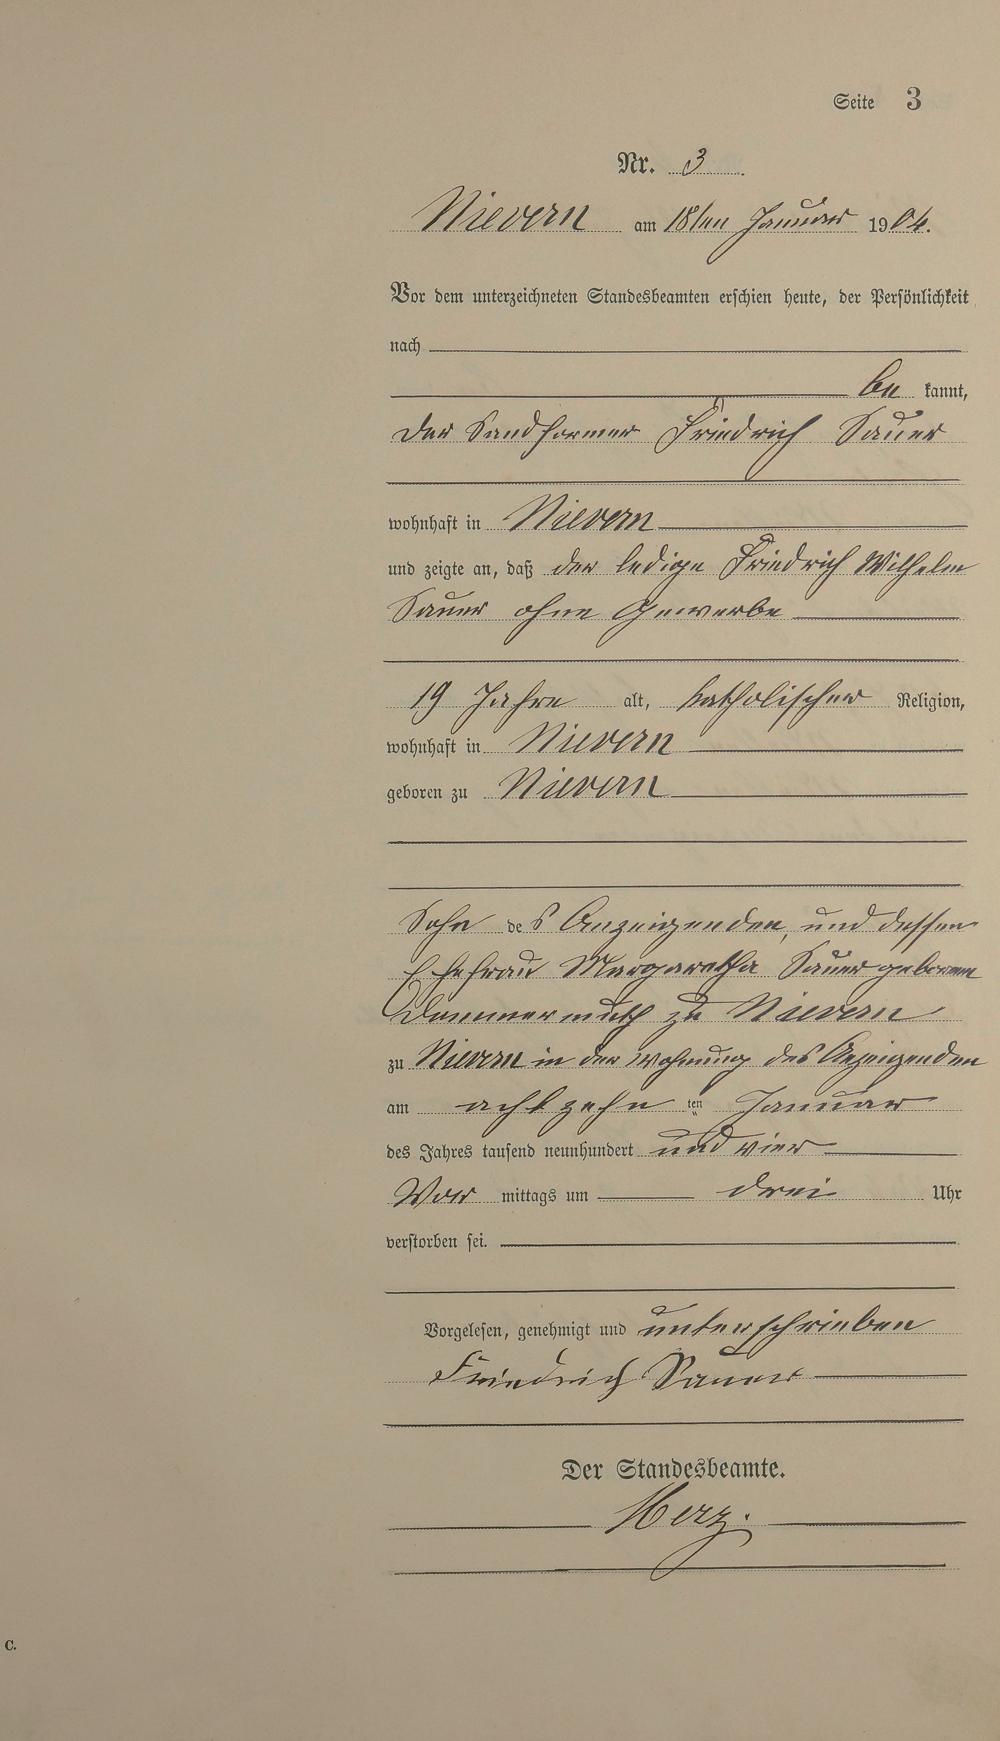 Seite 3
Nr. 3
Nievern am 18ten Januar 1904.
Vor dem unterzeichneten Standesbeamten erschien heute, der Persönlichkeit
nach
be kannt,
der Sandformer Friedrich Sauer
wohnhaft in Nievern
und zeigte an, daß der ledige Friedrich Wilhelm
Sauer ohne Gewerbe
19 Jahre alt, katholischer Religion,
wohnhaft in Nievern
geboren zu Nievern
Sohn des Anzeigenden, und dessen
Ehefrau Margaretha Sauer geborenen
zu Nievern
zu Nievern in der Wohnung des Anzeigenden
am achtzehn ten Januar
des Jahres tausend neunhundert und vier
Vor mittags um drei Uhr
verstorben sei.
Vorgelesen, genehmigt und unterschrieben
Friedrich Sauer
Der Standesbeamte.
Herz.
C.